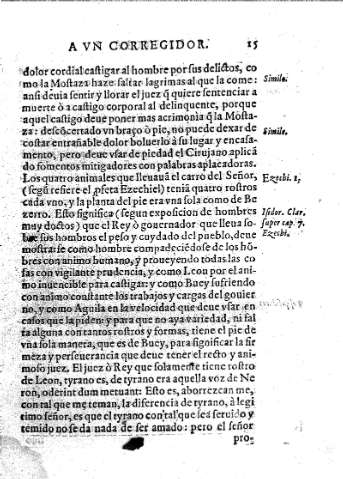 A VN CORREGIDOR. 15
dolor cordial castigar al hombre por sus delictos, co
mo la Mostaza haze saltar lagrimas al que la come:
ansi deuia sentir y llorar el juez q̃ quiere sentenciar a
muerte ò a castigo corporal al delinquente, porque
aquel castigo deue poner mas acrimonia q̃ la Mosta
za: descõcertado vn braço ò pie, no puede dexar de
costar entrañable dolor boluerlo à su lugar y encasa-
mento, pero deue vsar de piedad el Cirujano aplicã
do fomentos mitigadores con palabras aplacadoras.
Los quatro animales que lleuauã el carro del Señor,
(segũ refiere el ꝓfeta Ezechiel) teniã quatro rostros
cada vno, y la planta del pie era vna sola como de Be
zerro. Esto significa (segun exposicion de hombres
muy doctos) que el Rey ò gouernador que lleua so-
bre sus hombros el peso y cuydado del pueblo, deue
mostrarse como hombre compadeciẽdose de los hõ-
bres con animo humano, y proueyendo todas las co
sas con vigilante prudencia, y como Leon por el ani
mo inuencible para castigar: y como Buey sufriendo
con animo constante los trabajos y cargas del gouier
no, y como Aguila en la velocidad que deue vsar en
casos que la piden: y para que no aya variedad, ni fal
ta alguna con tantos rostros y formas, tiene el pie de
vña sola manera, que es de Buey, para significar la fir
meza y perseuerancia que deue tener el recto y ani-
moso juez. El juez ò Rey que solamente tiene rostro
de Leon, tyrano es, de tyrano era aquella voz de Ne
ron, oderint dum metuant: Esto es, aborrezcan me,
con tal que me teman, la diferencia de tyrano, à legi
timo señor, es que el tyrano con tal que sea seruido y
temido no se da nada de ser amado: pero el señor
pro-
Simile.
Simile.
Ezechi. 1.
Isidor. Clar.
super cap. 7.
Ezechi.